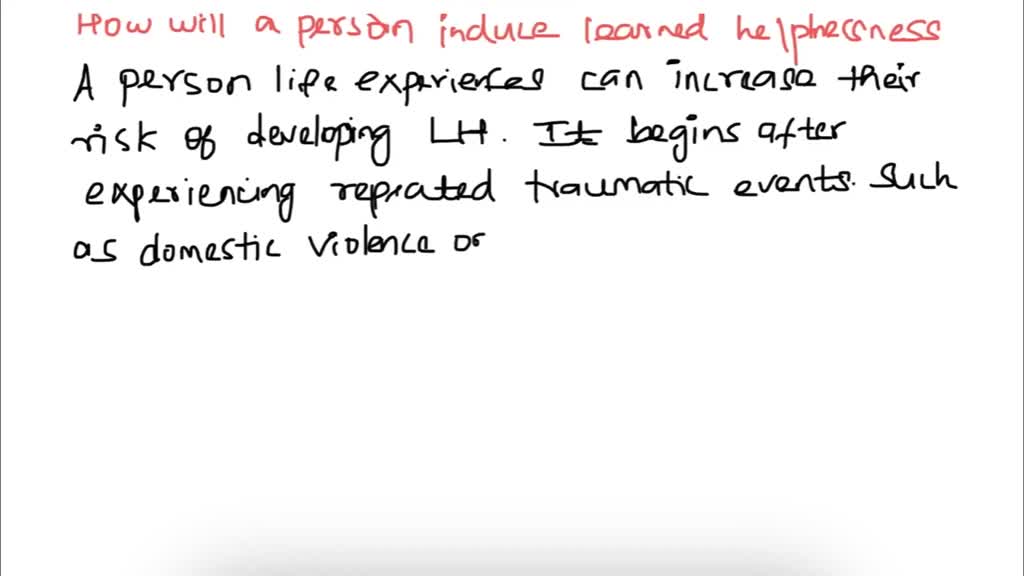 How will a person induce learned helplessness
A person life experiences can increase their
risk of developing LH. It begins after
experiencing repeated traumatic events. Such
as domestic violence or